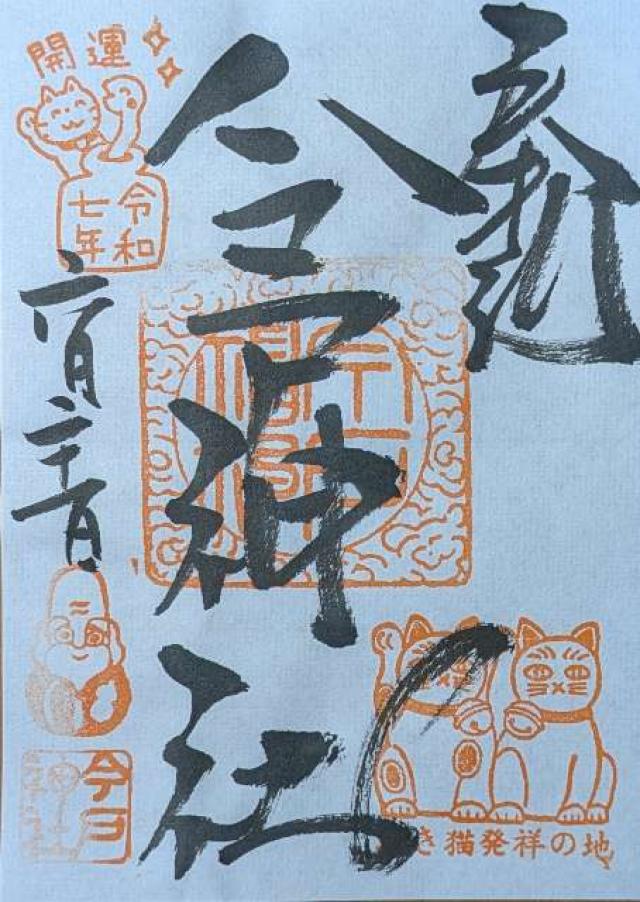 奉拝
今戸神社
開運
令和
七年
六月二十一日
今戸
き猫発祥の地